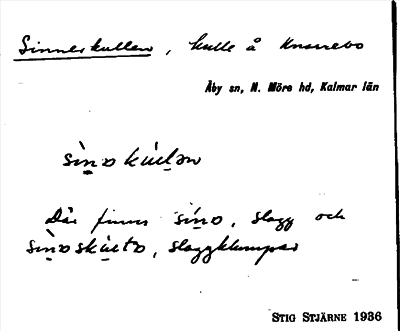 Sinnerkullen, kulle å Knarrebo
Åby sn, N. Möre hd, Kalmar län
sìn̥ɔkúl̥ən
Där finns sínɔ, slagg och
sìn̥ɔskúl̥tɔ, slaggklumpar
STIG STJÄRNE 1936